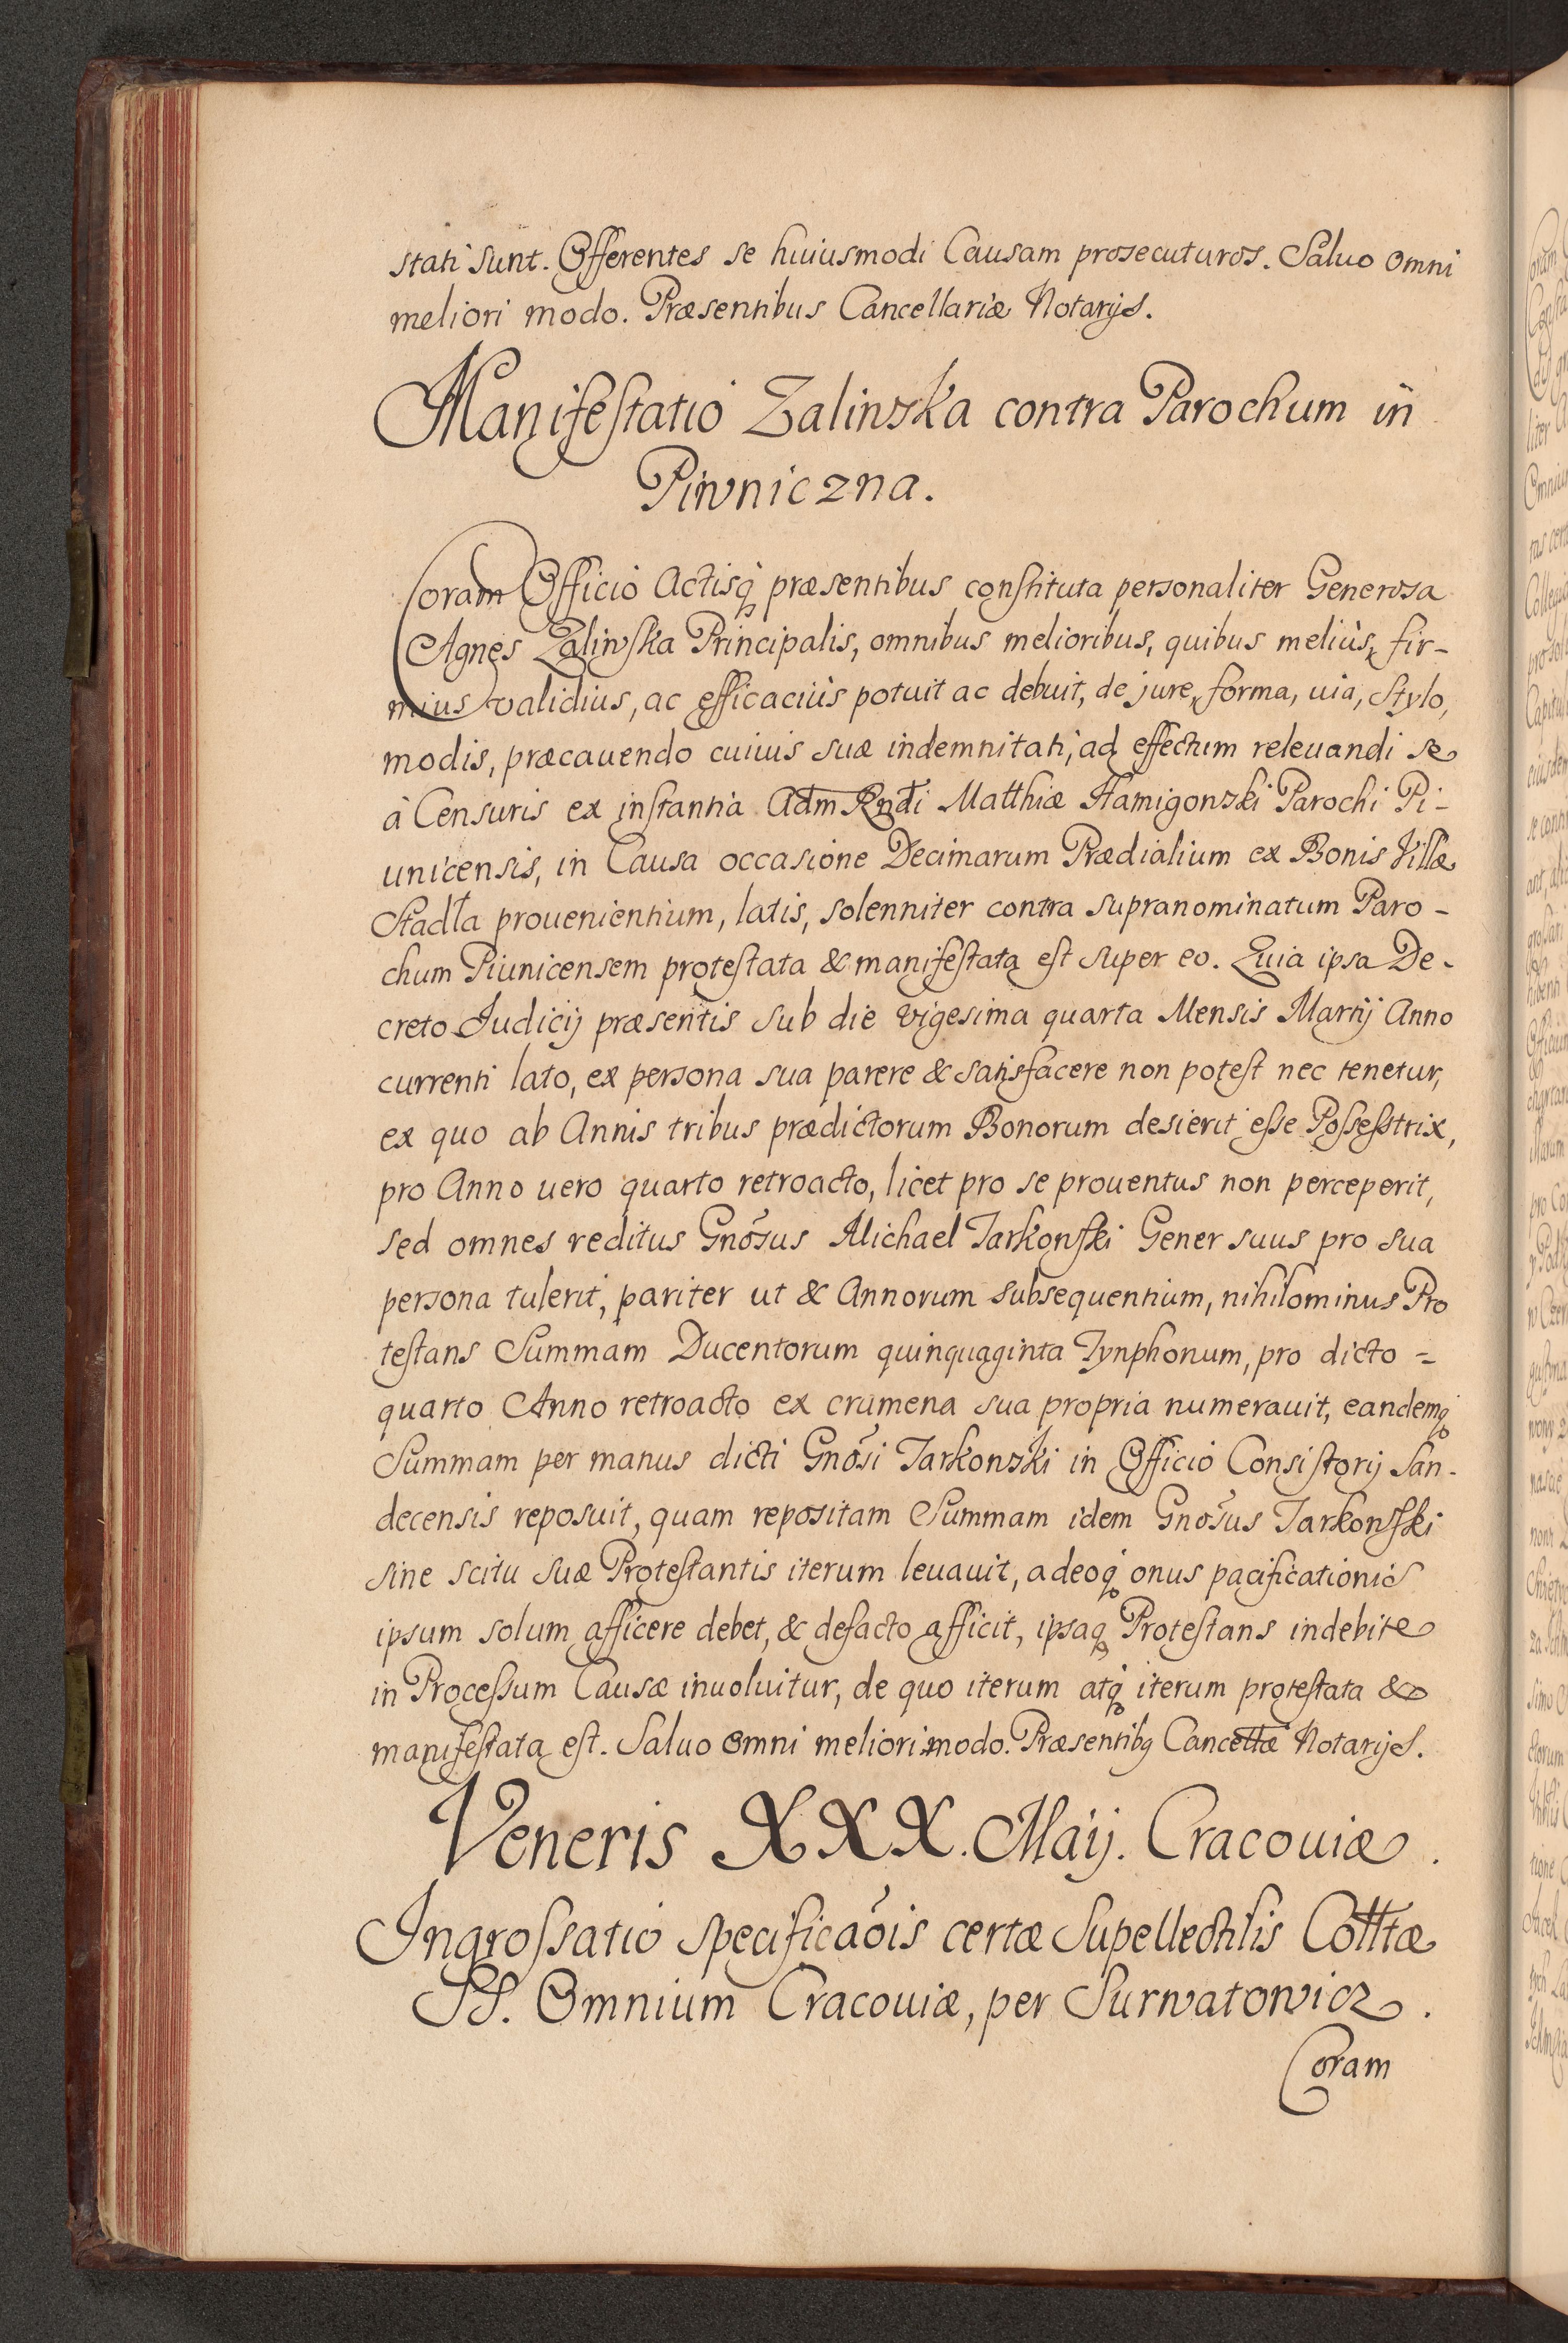 stati sunt. Offerentes se huiusmodi Causam prosecuturos. Saluo omni
meliori modo. Præsentibus Cancellariæ Notarijs.
Manifestatio Zalinska contra Parochum in
Piwniczna.
Coram Officio Actisq́ præsentibus constituta personaliter Generosa
Agnes Zalinska Principalis, omnibus melioribus, quibus meliùs, fir-
mius validius, ac efficaciùs potuit ac debuit, de jure, forma, uia, stylo,
modis, præcauendo cuiuis suæ indemnitati, ad effectum releuandi se
à Censuris ex instantia Adm Rndi Matthiæ Flamigowski Parochi Pi-
unicensis, in Causa occasione Decimarum Prædialium ex Bonis Villæ
Stadła prouenientium, latis, solenniter contra supranominatum Paro-
chum Piunicensem protestata & manifestata est super eo. Quia ipsa De-
creto Iudicij præsentis sub die vigesima quarta Mensis Martij Anno
currenti lato, ex persona sua parere & satisfacere non potest nec tenetur,
ex quo ab Annis tribus prædictorum Bonorum desierit esse Possesstrix,
pro Anno uero quarto retroacto, licet pro se prouentus non perceperit,
sed omnes reditus Gnõsus Michael Tarkowski Gener suus pro sua
persona tulerit, pariter ut & Annorum subsequentium, nihilominus Pro
testans Summam Ducentorum quinquaginta Tynphonum, pro dicto =
quarto Anno retroacto ex crumena sua propria numerauit, eandemq́
Summam per manus dicti Gnõsi Tarkowski in Officio Consistorij San-
decensis reposuit, quam repositam Summam idem Gnõsus Tarkowski
sine scitu suæ Protestantis iterum leuauit, adeoq́ onus pacificationis
ipsum solum afficere debet, & defacto afficit, ipsaq́ Protestans indebite
in Processum Causæ inuoluitur, de quo iterum atq́ iterum protestata &
manifestata est. Saluo omni meliori modo. Præsentibq Cancellæ Notarijs.
Veneris XXX. Maij. Cracouiæ.
Ingrossatio specificaõis certæ Supellectilis Colltæ
SS. Omnium Cracouiæ, per Surwatowicz.
Coram